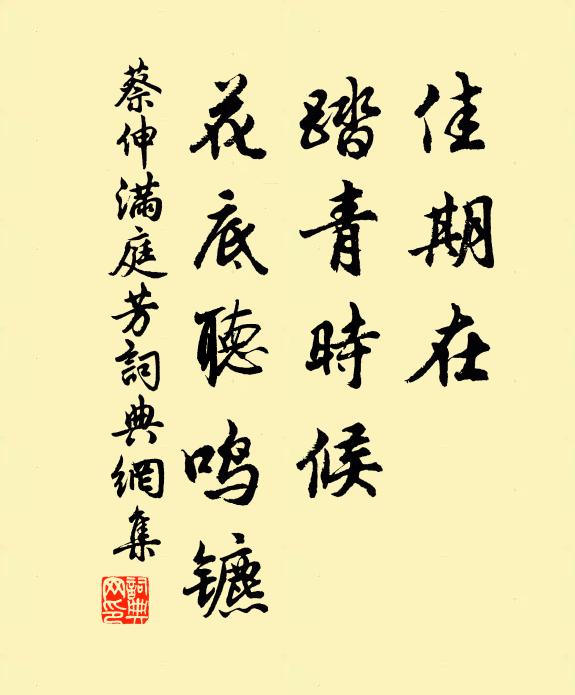 佳期在
踏青時候
花底聽鸣鑣
蔡伸滿庭芳詞典網集
詞典网印